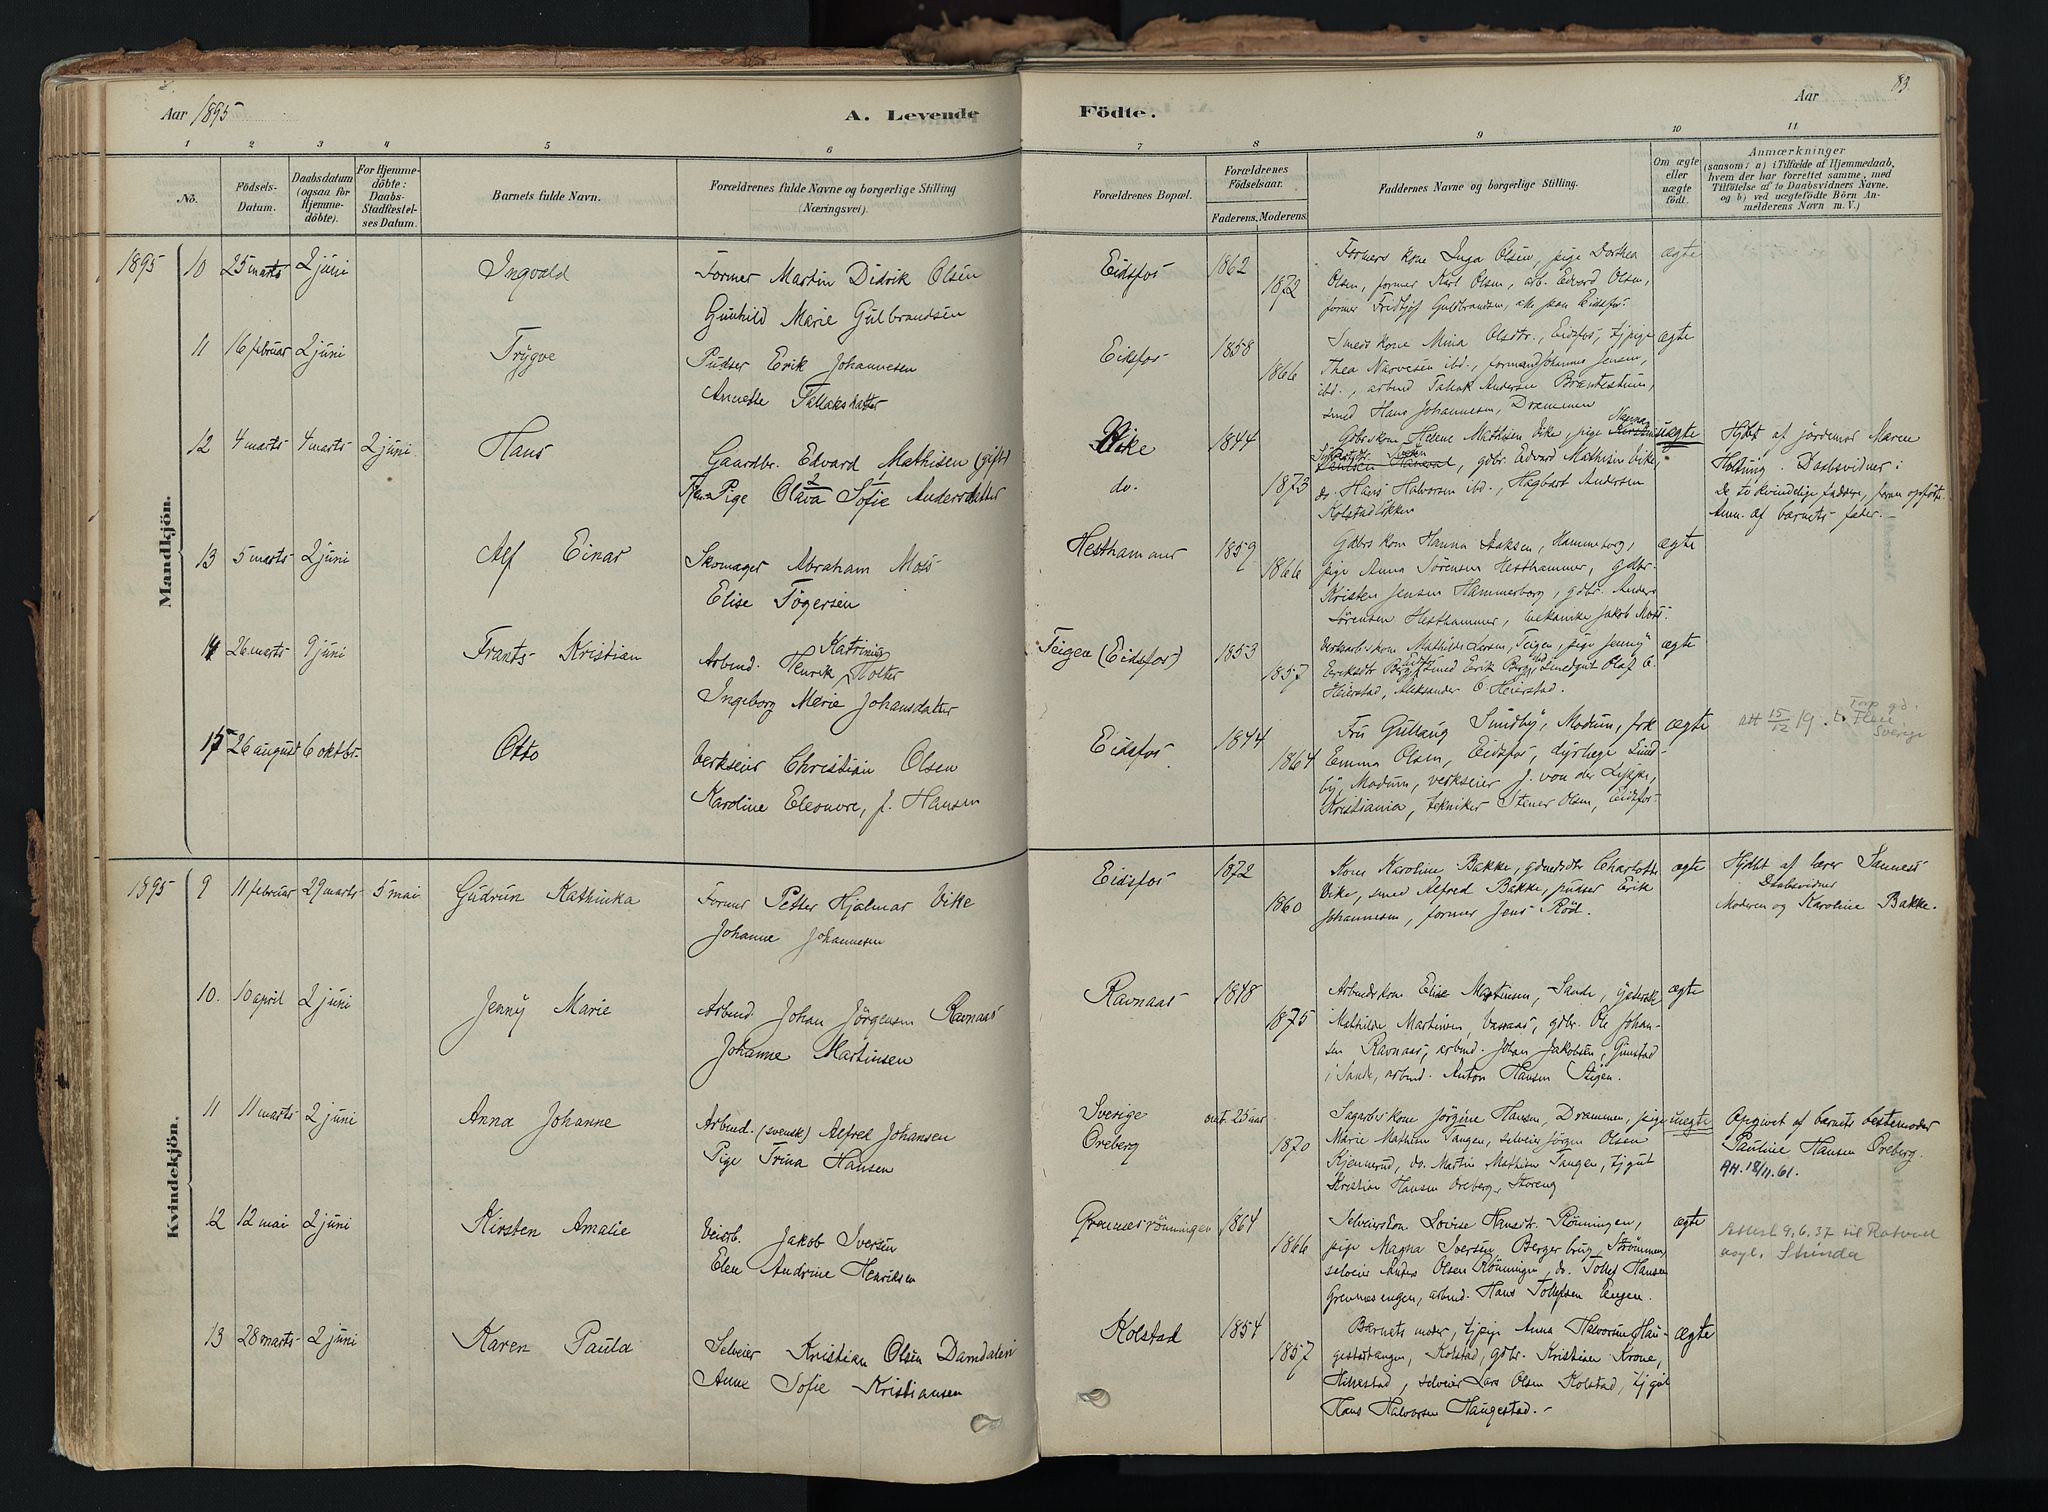 Aar 1895
A. Levende
Födte.
Aar
83.
1 2 3 4 5 6 7 8 9 10 11
No.
Födsels-
Datum.
Daabsdatum
(ogsaa for
Hjemme-
döbte).
For Hjemme-
döbte:
Daabs-
Stadfæstel-
ses Datum.
Barnets fulde Navn.
Forældrenes fulde Navne og borgerlige Stilling
(Næringsvei).
Forældrenes Bopæl.
Forældrenes
Födselsaar.
Faderens. Moderens.
Faddernes Navne og borgerlige Stilling.
Om ægte
eller
uægte
födt.
Anmærkninger
(saasom: a) i Tilfælde af Hjemmedaab,
hvem der har forrettet samme, med
Tilföielse af to Daabsvidners Navne,
og b) ved uægtefödte Börn An-
melderens Navn m. V.)
Mandkjön.
1895 10 25 marts 2 juni
Ingvald
Former Martin Didrik Olsen
Gunhild Marie Gulbrandsen
Eidsfos 1862
1872
Formers kone Inga Olsen, pige Dorthea
Olsen, former Karl Olsen, arb. Edvard Olsen,
former Fridtjof Gulbrandsen, alle paa Eidsfos.
ægte
11 16 februar 2 juni
Trygve
Pudser Erik Johannesen
Annette Tallaksdatter
Eidsfos 1858
1866
Smeds kone Mina Olsdtr., Eidsfos, tj.pige
Thea Narvesen ibd., formand Johannes Jensen,
ibd., arbmd Tallak Andersen
smed Hans Johannesen, Drammen
ægte
12 4 marts 4 marts 2 juni
Hans
Gaardbr. Edvard Mathisen (gift)
Pige Olava Sofie Andersdatter
Vike
do.
1844
1873
Gdbrskone Helene Mathisen Vike, pige Nanna
gdbr. Edvard Mathisen Vike,
do. Hans Halvorsen ibd., Hagbart Andersen
Kolstadlökken
uægte
Hjdbt af jordemor Maren
Holtung. Daabsvidner:
De to kvindelige faddere,
Anm. af barnets fader.
13 5 marts 2 juni
Alf Einar
Skomager Abraham Moss
Elise Tögersen
Hesthammer 1859
1866
Gdbrs kone Hanna Isaksen, Hammerborg,
pige Anna Sörensen Hesthammer, gdbr.
Kristen Jensen Hammerborg, gdbr. Anders
Sörensen Hesthammer, mekaniker Jakob Moss.
ægte
14 26 marts 9 juni
Frants Kristian
Arbmd. Henrik Katrinus Holter
Ingeborg Marie Johansdatter
Teigen (Eidsfos) 1853
1857
Verksarb.skone Mathilde Larsen, Teigen, pige Jenny
Eriksdtr Berg, smed Erik Berg, smedgut Olaf C.
Heierstad, Aleksander C. Heierstad.
ægte
15 26 august 6 oktbr.
Otto
Verkseier Christian Olsen
Karoline Eleonore, f. Hansen
Eidsfos 1844
1864
Fru Gullaug Sundby, Modum, frk
Emma Olsen, Eidsfos, dyrlæge Sund-
by, Modum, verkseier J. von der Lippe,
Kristiania, tekniker Stener Olsen, Eidsfos.
ægte
Att 15/12 19.
Sverige
Kvindekjön.
1895 9 11 februar 29 marts 5 mai
Gudrun Kathinka
Former Petter Hjalmar Vike
Johanne Johannesen
Eidsfos 1872
1860
Kone Karoline Bakke, Charlotte
Vike, smed Alfred Bakke, pudser Erik
Johannesen, former Jens Röd.
ægte
Hjdbt af lærer Sanness
Daabsvidner
Moderen og Karoline Bakke.
10. 10 april 2 juni
Jenny Marie
Arbmd Johan Jörgensen Ravnaas
Johanne Martinsen
Ravnaas 1848
1875
Arbmdskone Elise Martinsen, Sande,
Mathilde Martinsen gdbr. Ole Johan-
sen Ravnaas, arbmd. Johan Jakobsen, Gunstad
i Sande, arbmd. Anton Hansen Stigen.
ægte
11 11 marts 2 juni
Anna Johanne
Arbmd. (svensk) Alfred Johansen
Pige Trina Hansen
Sverige omt. 25 aar
Oreberg 1870
Sagarbs kone Jörgine Hansen, Drammen, pige
Marie Mathisen Tangen, selveier Jörgen Olsen
Kjennerud, do. Martin Mathisen Tangen, tj.gut
Kristian Hansen Oreberg, Storeng
uægte
Opgivet af barnets bestemoder
Pauline Hansen Oreberg.
Att. 18/11.61.
12 12 mai 2 juni
Kirsten Amalie
Veiarb. Jakob Iversen
Elen Andrine Henriksen
Grennesrönningen 1864
1866
Selveierskone Lovise Hansdtr. Rönningen,
pige Magna Iversen Bergerbrug, Strömmen,
selveier Anders Olsen Rönningen, do. Tollef Hansen
Grennesengen, arbmd. Hans Tollefsen Engen.
ægte
Attest 9.6.37 til
13 28 marts 2 juni
Karen Paula
Selveier Kristian Olsen Damdalen
Anne Sofie Kristiansen
Kolstad 1854
1857
Barnets moder, tj.pige Anna Halvorsen Hau-
gestadtangen, Kolstad, gdbr. Kristian Krone,
Hillestad, selveier Lars Olsen Kolstad, tj.gut
Hans Halvorsen Haugestad.
ægte